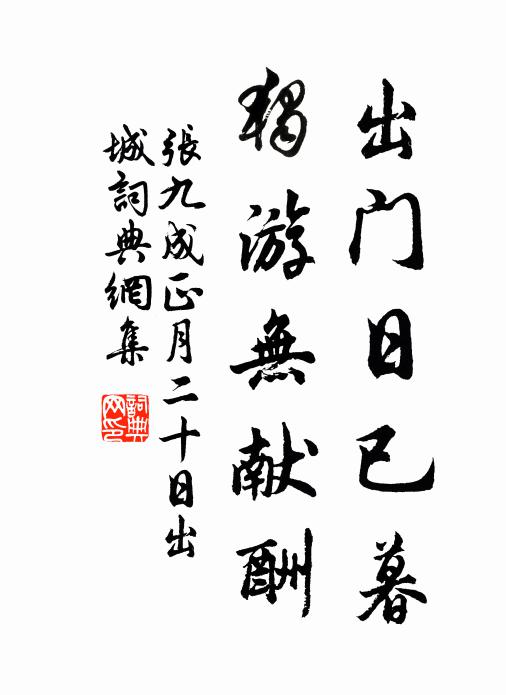 出门日已暮
獨游無献酬
張九成正月二十日出
城詞典網集
詞典
网印